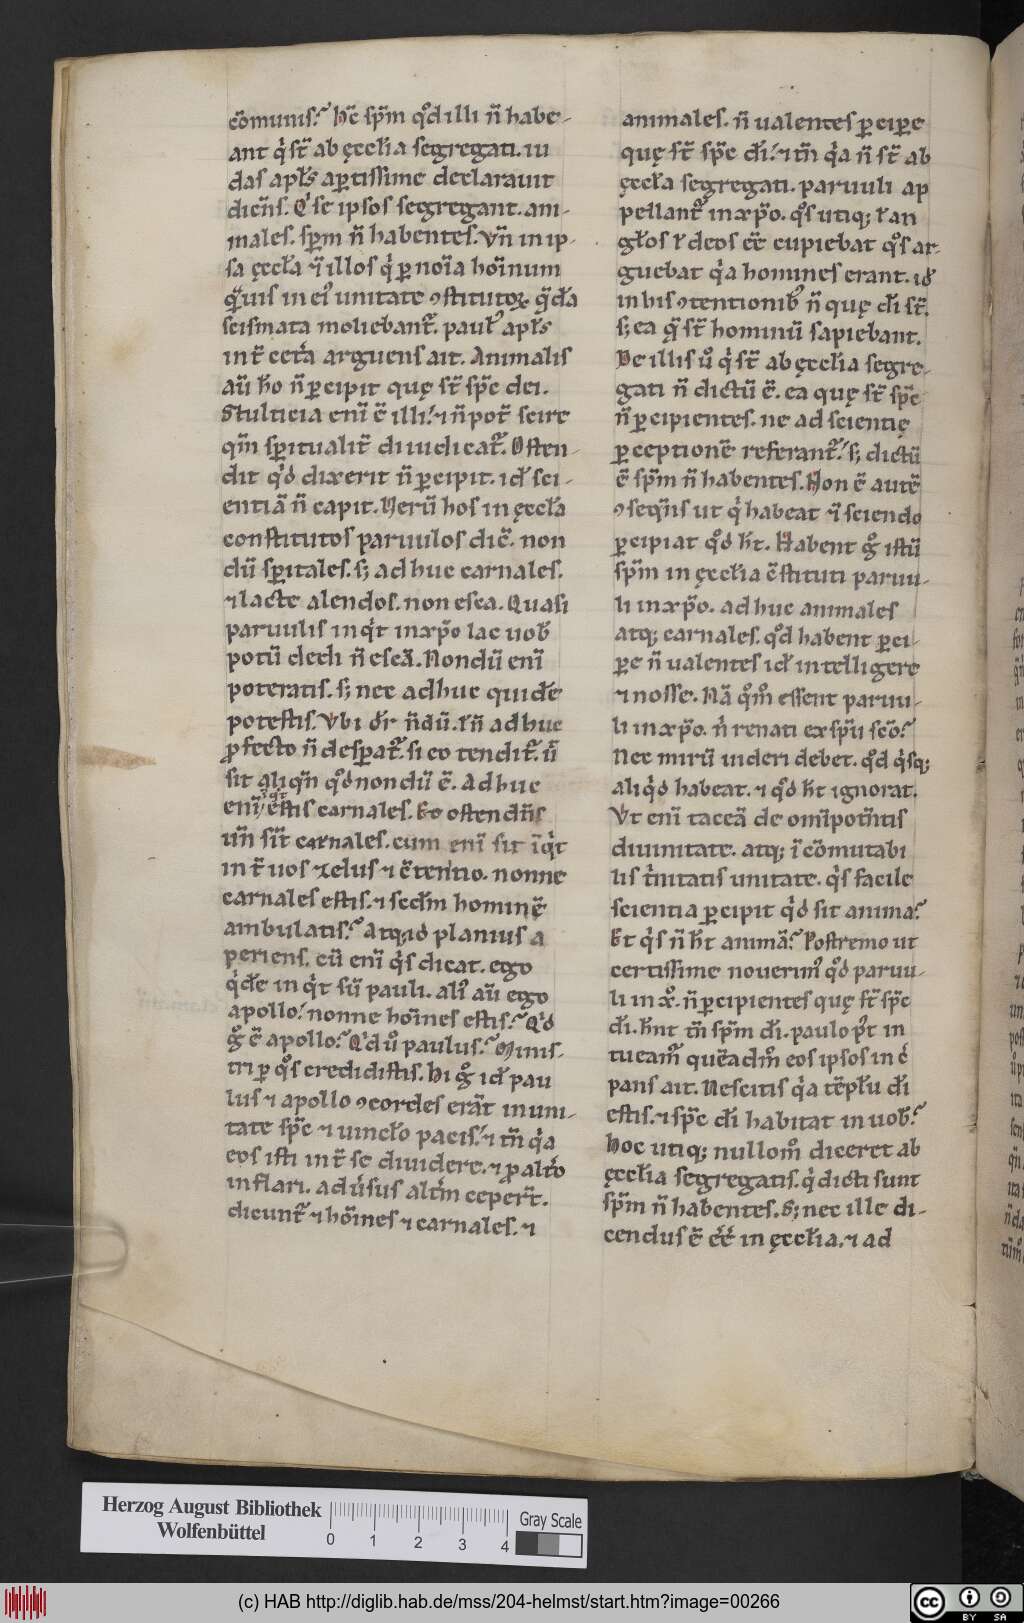 cōmunis? Hc̄ sp̄m qd̊ illi n̄ habe-
ant q̇ st̄ ab ęccl̄ia segregati. iu
das apl̄s aꝑtissime declarauit
dicēs. Q̇ se ipsos segregant. ani-
males. sp̄m n̄ habentes. Vn̄ in ip-
sa ęccl̄a ⁊ illos q̇ ꝑ noīa hoīnum
q̄uis in ei᷒ unitate ꝯstitutoꝝ q̄dā
scismata moliebant᷑. paul᷒ apl̄s
int̄ cet̄a arguens ait. Animalis
aū hō n̄ ꝑcipit quę st̄ sp̄c dei.
Stulticia enī ē illi. ⁊ n̄ pot̄ scire
qm̄ sp̄ritualit̄ diiudicat᷑. Osten-
dit qd̓ dixerit n̄ ꝑcipit. id̄ sci-
entiā n̄ capit. Verū hos in ęccl̄a
constitutos paruulos dic̄. non
dū sp̄itales. s; adhuc carnales.
⁊ lacte alendos. non esca. Quasi
paruulis inq̇t in xp̄o lac uob̄
potū dedi n̄ escā. Nondū enī
poteratis. s; nec adhuc quidē
potestis. Vbi dr̄ n̄dū. ł n̄ adhuc
ꝓfecto n̄ desꝑat᷑. si eo tendit᷑. ū
sit aliqn̄ qd̊ nondū ē. Adhuc
enī inq̇t estis carnales. Et ostendēs
un̄ sīt carnales. cum enī sit īq̇t
int̄ uos zelus ⁊ c̄tentio. nonne
carnales estis. ⁊ scd̄m hominē
ambulatis? Atq; id planius a
periens. cū enī q̇s dicat. ego
q̇dē inq̇t sū pauli. ali᷒ aū ego
apollo. nonne hoīnes estis? Q̇d
g̊ ē apollo? Q̇d ů paulus? Minis-
tri ꝑ q̊s credidistis. Hi g̊ id̄ pau
lus ⁊ apollo ꝯcordes erāt in uni-
tate sp̄c ⁊ uincl̄o pacis. ⁊ tn̄ q̇a
eos isti int̄ se diuidere. ⁊ ꝓ alt̄o
inflari. aduṡus alt̄m ceper̄t.
dicunt᷑ ⁊ hoīnes ⁊ carnales. ⁊
animales. n̄ ualentes ꝑciꝑe
quę st̄ sp̄c dī. ⁊ tn̄ q̇a n̄ st̄ ab
ęccl̄a segregati. paruuli ap
pellant᷑ in xp̄o. q̊s utiq; ł an
gl̄os ł deos eē cupiebat q̊s ar-
guebat q̇a homines erant. id̓
in his ꝯtentionib᷒ n̄ quę dī st̄.
s; ea q̄ st̄ hominū sapiebant.
De illis ů q̇ st̄ ab ęccl̄ia segre-
gati n̄ dictū ē. ea quę st̄ sp̄c
n̄ ꝑcipientes. ne ad scientię
ꝑceptionē referant᷑. s; dictū
ē sp̄m n̄ habentes. Non ē autē
ꝯseqn̄s ut q̇ habeat ⁊ sciendo
ꝑcipiat qd̊ h̄t. Habent g̊ istū
sp̄m in ęccl̄ia c̄stituti paruu-
li in xp̄o. adhuc animales
atq; carnales. qd̊ habent ꝑci-
ꝑe n̄ ualentes id̄ intelligere
⁊ nosse. Nā qm̊ essent paruu-
li in xp̄o. n̄ renati ex sp̄u scō?
Nec mirū uideri debet. qd̊ q̇sq;
aliq̇d habeat. ⁊ qd̊ h̄t ignorat.
Vt enī taceā de omīpotn̄tis
diuinitate. atq; ī cōmutabi
lis tr̄nitatis unitate. q̇s facile
scientia ꝑcipit q̇d sit anima?
Et q̇s n̄ h̄t animā? Postremo ut
certissime nouerim᷒ qd̊ paruu-
li in xp̊. n̄ ꝑcipientes quę st̄ sp̄c
dī. hn̄t tm̄ sp̄m dī. paulo pꝰt in
tueam᷑ quēadm̊ eos ipsos inc̓
pans ait. Nescitis q̇a tēpl̄u dī
estis. ⁊ sp̄c dī habitat in uob̄?
Hoc utiq; nullom̊ diceret ab
ęccl̄ia segregatis. q̇ dicti sunt
sp̄m n̄ habentes. S; nec ille di-
cendus ē eē̄ in ęccl̄ia. ⁊ ad
Herzog August Bibliothek
Wolfenbüttel
0 1 2 3 4
Gray Scale
(c) HAB http://diglib.hab.de/mss/204-helmst/start.htm?image=00266
cc BY SA